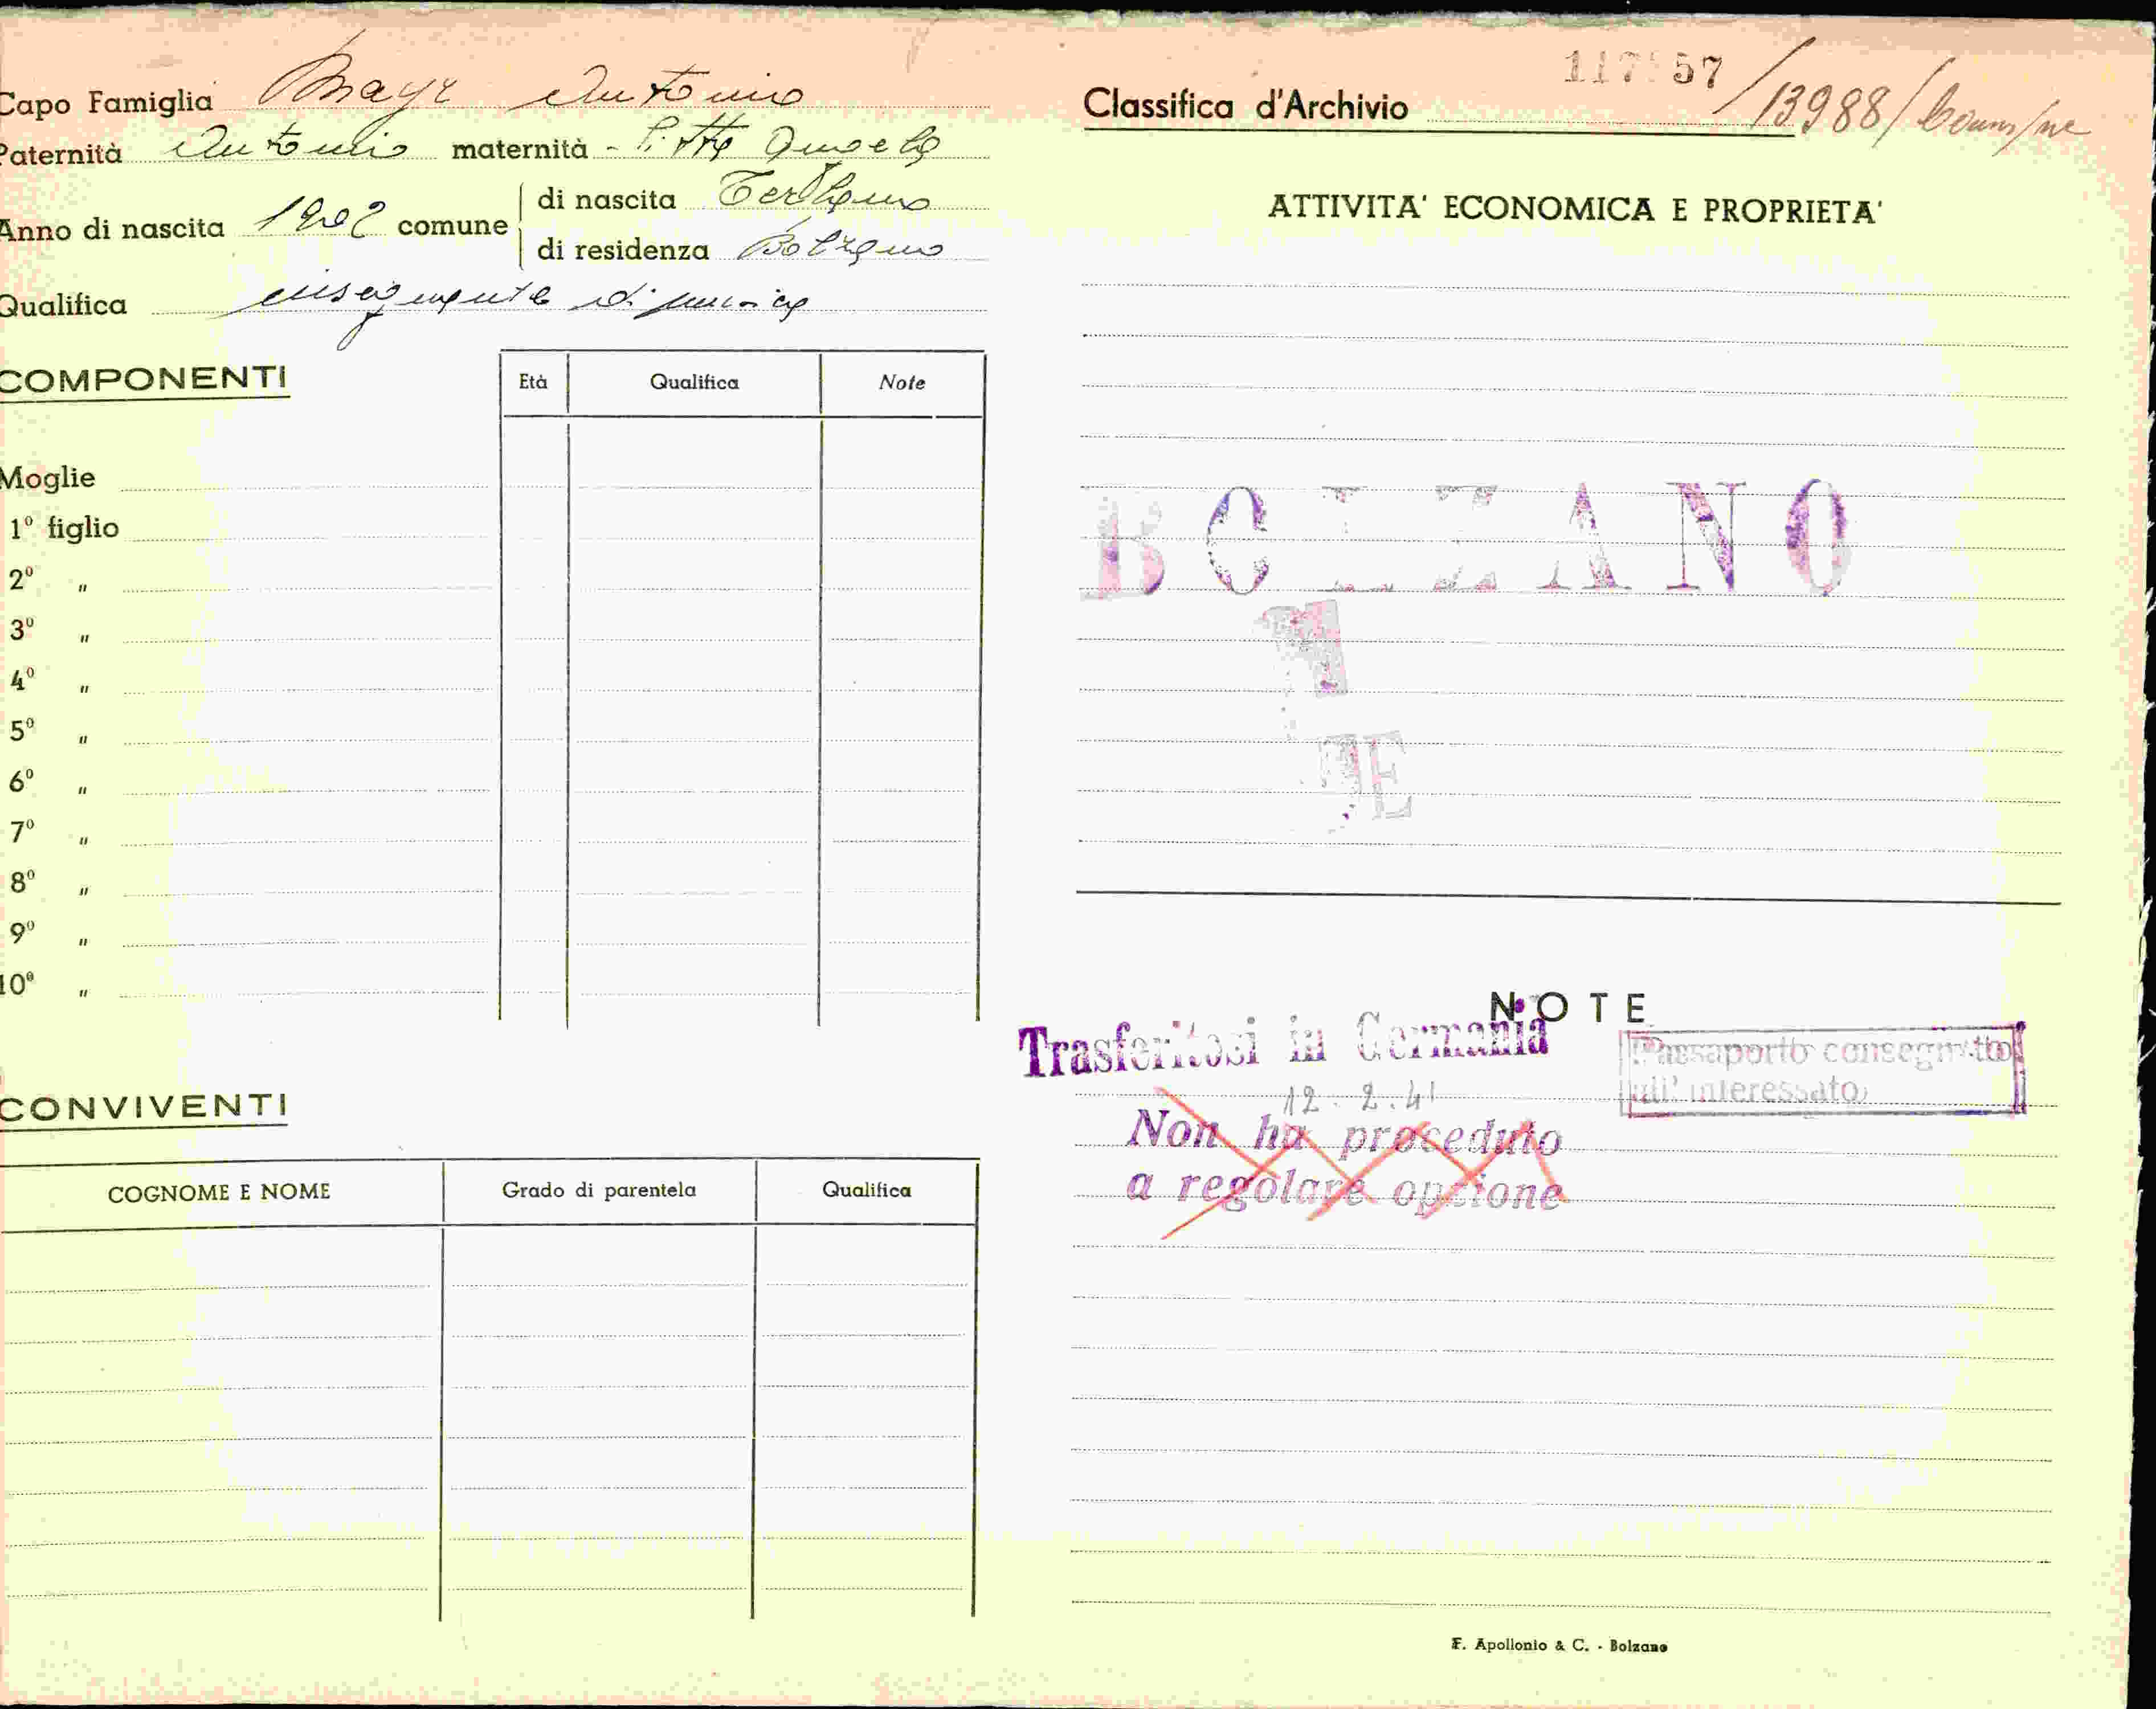 Capo Famiglia Mayr Antonio
Paternità Antonio maternità - Pitto Angela
Anno di nascita 1902 comune
di nascita Terlano
di residenza Bolzano
Qualifica insegnante di musica
COMPONENTI
Età Qualifica Note
Moglie
1º figlio
2º "
3º "
4º "
5º "
6º "
7º "
8º "
9º "
10º "
CONVIVENTI
COGNOME E NOME Grado di parentela Qualifica
Classifica d'Archivio 13988/
ATTIVITA' ECONOMICA E PROPRIETA'
BOLZANO
NOTE
Trasferitosi in Germania
12.2.41
Passaporto consegnato
all' interessato
Non ha proceduto
a regolare opzione
F. Apollonio & C. - Bolzano